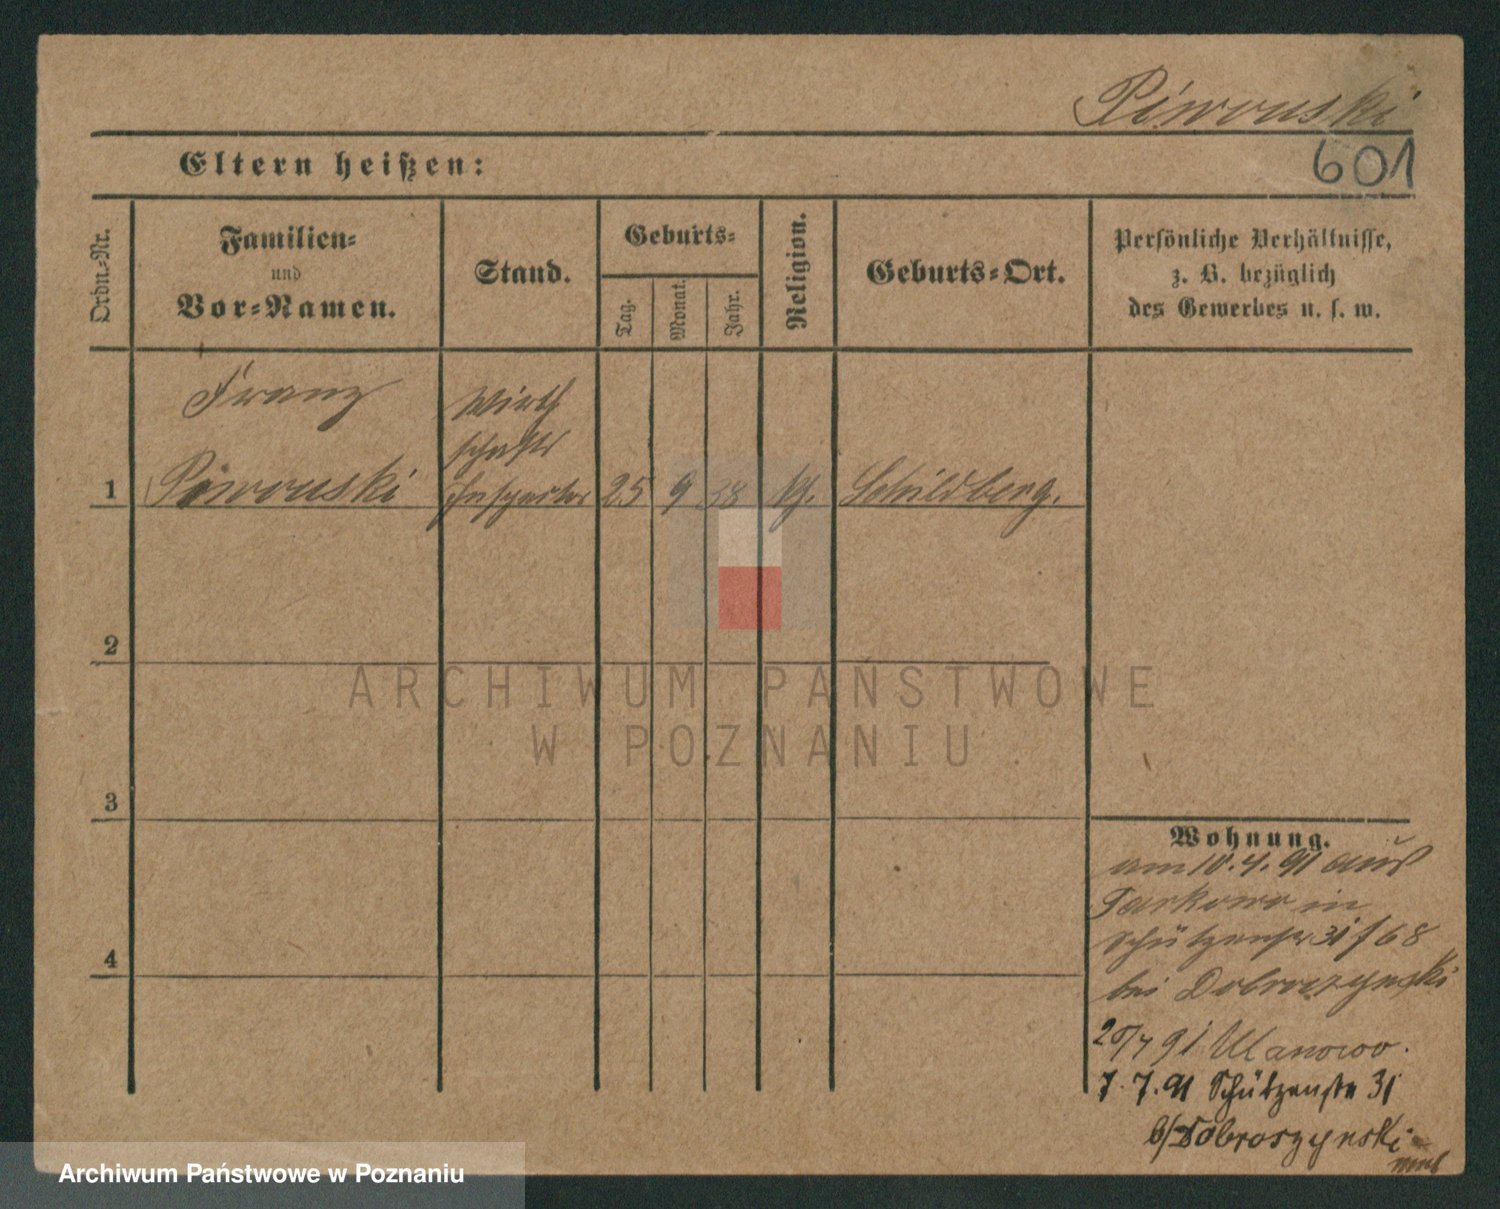 Piwonski
601
Eltern heißen:
Ordn.-Nr.
Familien-
und
Vor-Namen.
Stand.
Geburts-
Tag.
Monat.
Jahr.
Religion.
Geburts-Ort.
Persönliche Verhältnisse,
z. B. bezüglich
des Gewerbes u. s. w.
Franz
Wirth
schafts
1 Piwonski Inspector 25 9 38 kt. Schildberg.
2
ARCHIWUM PAŃSTWOWE
W POZNANIU
3
Wohnung.
am 10.4.91 aus
Tarkowo in
Schützenstr 31 f 68
bei Dobroszynski
4
91
7.7.91 Schützenstr 31
b/ Dobroszynski
Archiwum Państwowe w Poznaniu